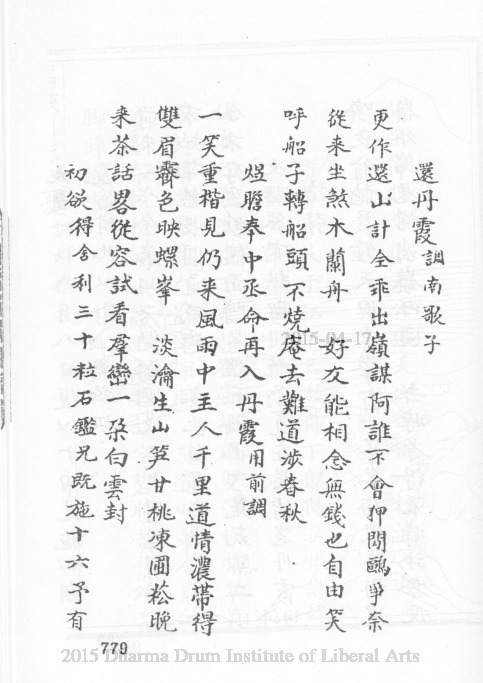 還丹霞調南歌子
更作還山計全乖出嶺謀阿誰不會狎閒鷗爭奈
從來坐煞木蘭舟　好友能相念無錢也自由笑
呼船子轉船頭不燒庵去難道涉春秋
煜膽奉中丞命再入丹霞用前調
一笑重楷見仍來風雨中主人千里道情濃帶得
雙眉霽色映螺峯　淡瀹生山笋甘桃凍圃菘晚
來茶話畧從容試看羣巒一朶白雲封
初欲得舍利三十粒石鑑兄既施十六予有
2015-04-17
779
2015 Dharma Drum Institute of Liberal Arts